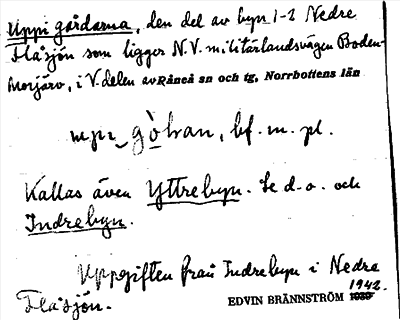 Uppi gårdarna, den del av byn i Nedre
Flåsjön som ligger N.V. militärlandsvägen Boden-
Morjärv, i V. delen av Råneå sn och tg, Norrbottens län
göḷran, bf. m. pl.
Kallas även Yttrebyn. Se d. o. och
Indrebyn.
Uppgiften från Indrebyn i Nedre
Flåsjön.
EDVIN BRÄNNSTRÖM 1942.